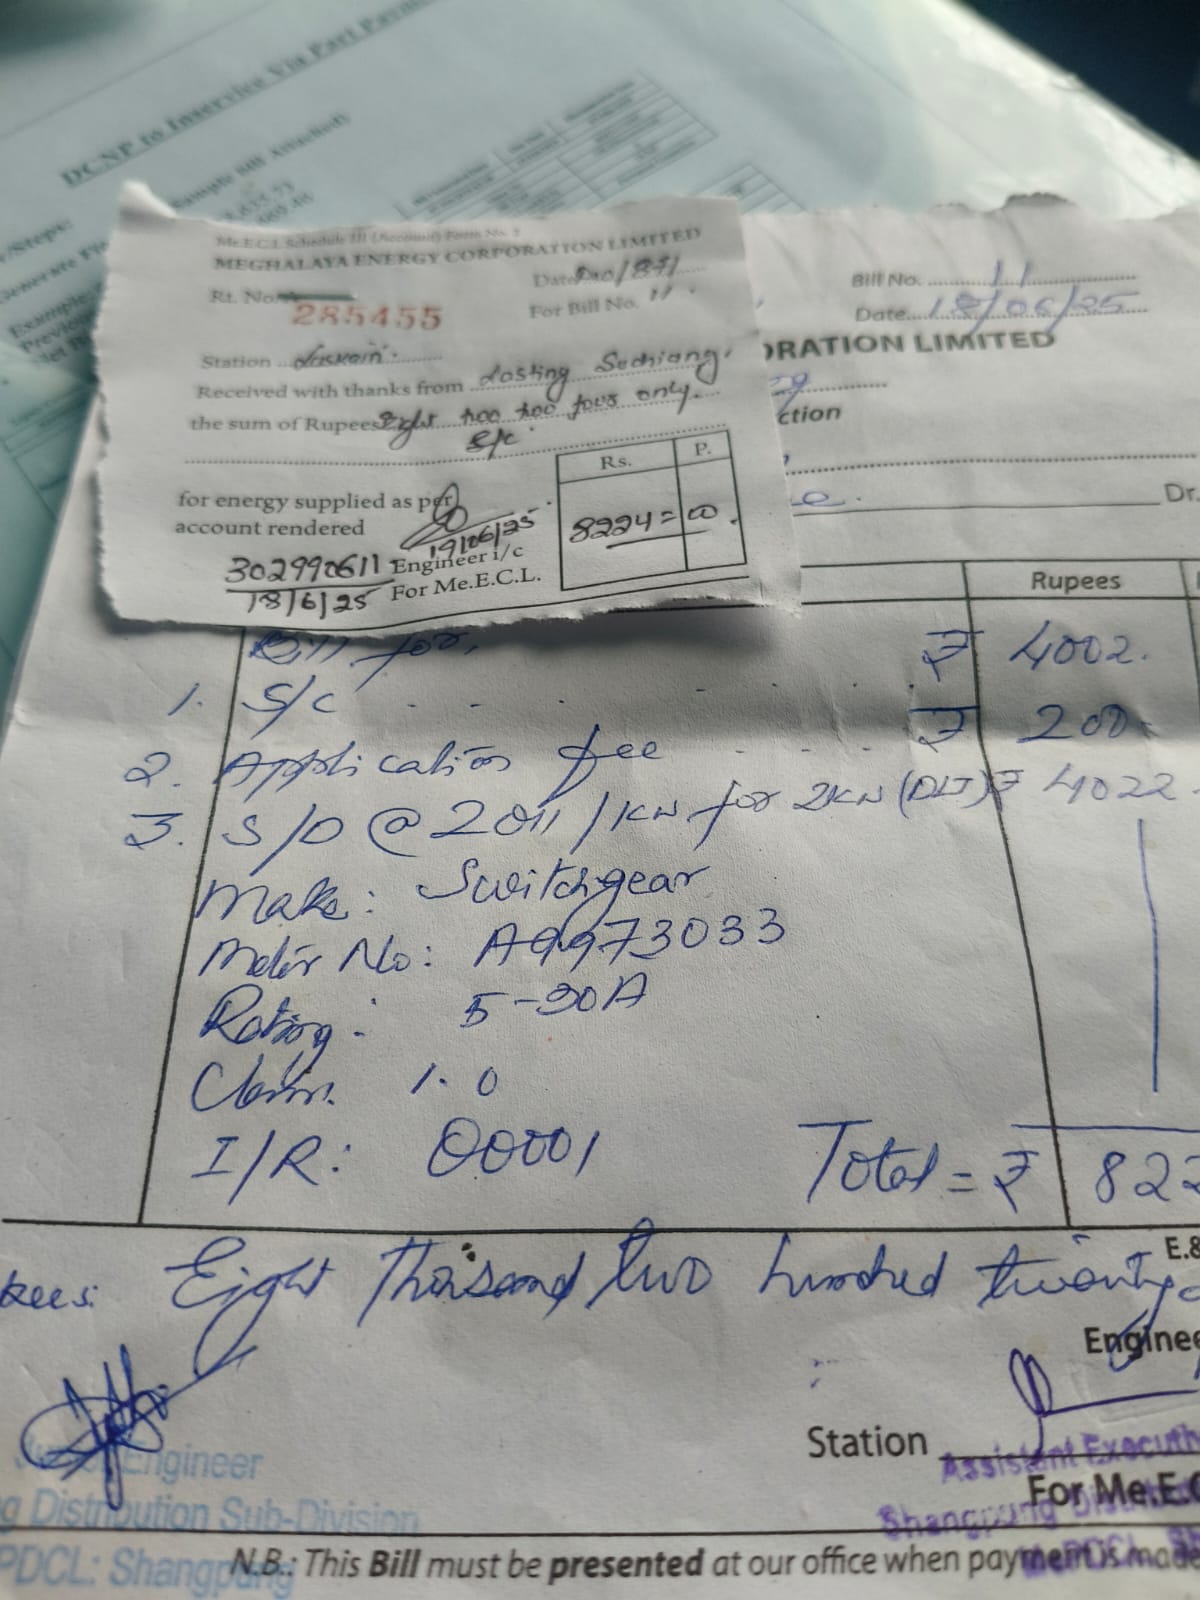 DCNP to Inservice Via Part Payme
Sample Bill Attached)
Me.E.C.L Schedule III (Account) Form No. 2
MEGHALAYA ENERGY CORPORATION LIMITED
Rt. No.
285455
Date
For Bill No. 11.
Station
Received with thanks from Lasting Suchiang.
the sum of Rupees Eight two two four only.
S/c.
Rs. P.
for energy supplied as per
account rendered
8224=00.
19/06/25
302990611 Engineer i/c
18/6/25 For Me.E.C.L.
Bill No. 11
Date 18/06/25
ORATION LIMITED
ction
Dr.
Rupees
Bill for,
1. S/C ₹ 4002.
2. Application fee ₹ 200
3. S/D @ 2011/KW for 2KW (DLT) ₹ 4022.
Make: Switchgear
Meter No: A9973033
Rating: 5-30A
Class. 1.0
I/R: 00001
Total = ₹ 822
E.&
Eight Thousand two hundred twenty
Enginee
Station
Engineer
g Distribution Sub-Division
PDCL: Shangpung
Assistant Executi
For Me.E.C
Shangpung
N.B.: This Bill must be presented at our office when payment is made